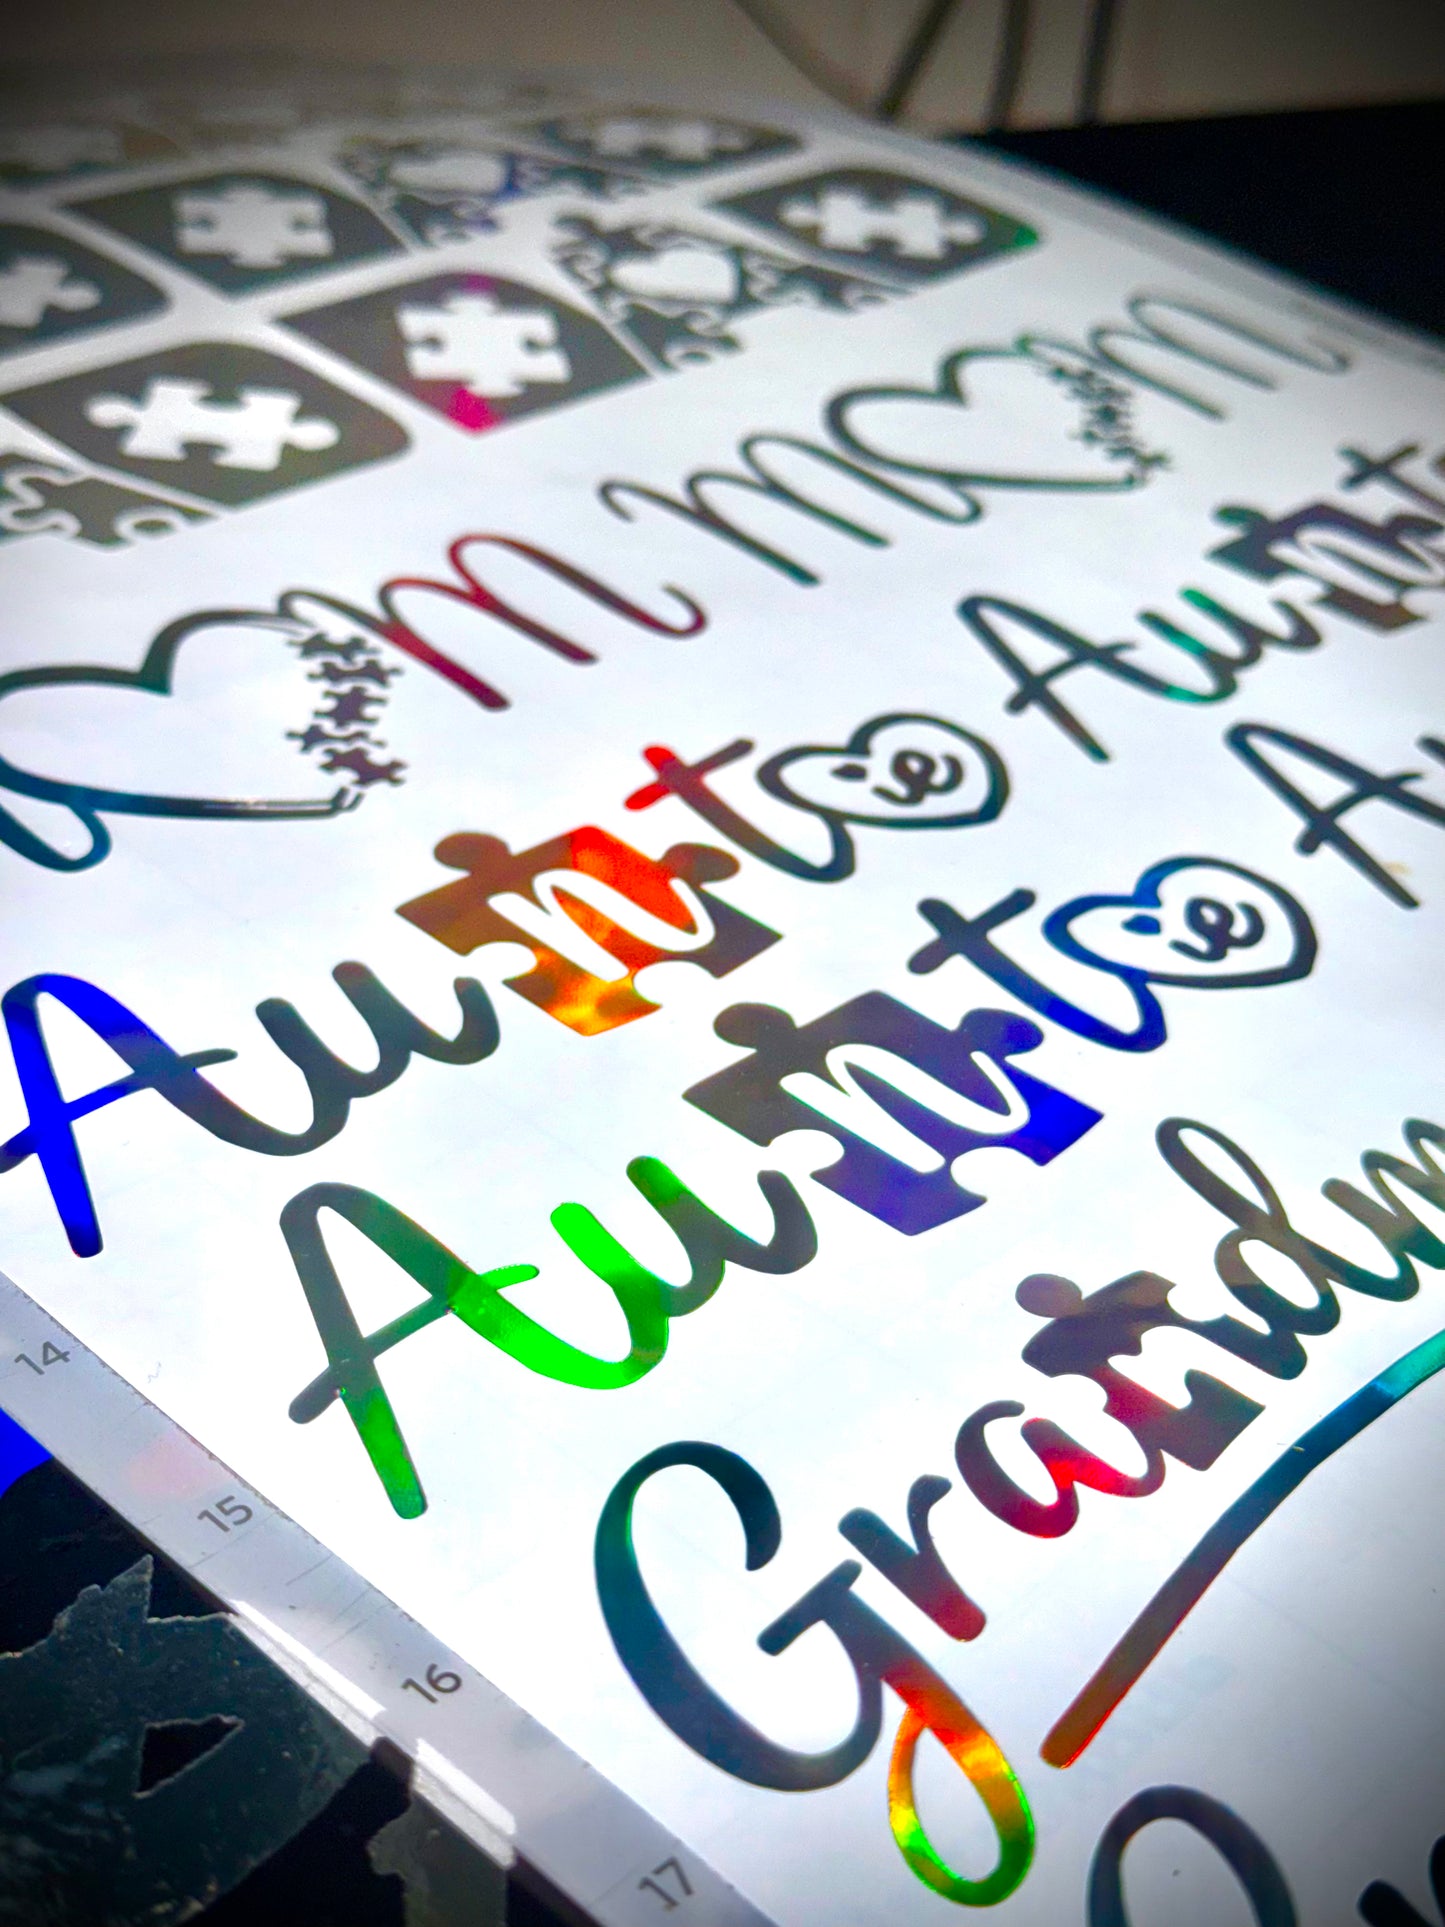 om mom
Auntie Aunt
Auntie A
Grandm
14
15
16
17